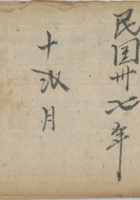 民国卅七年
十月